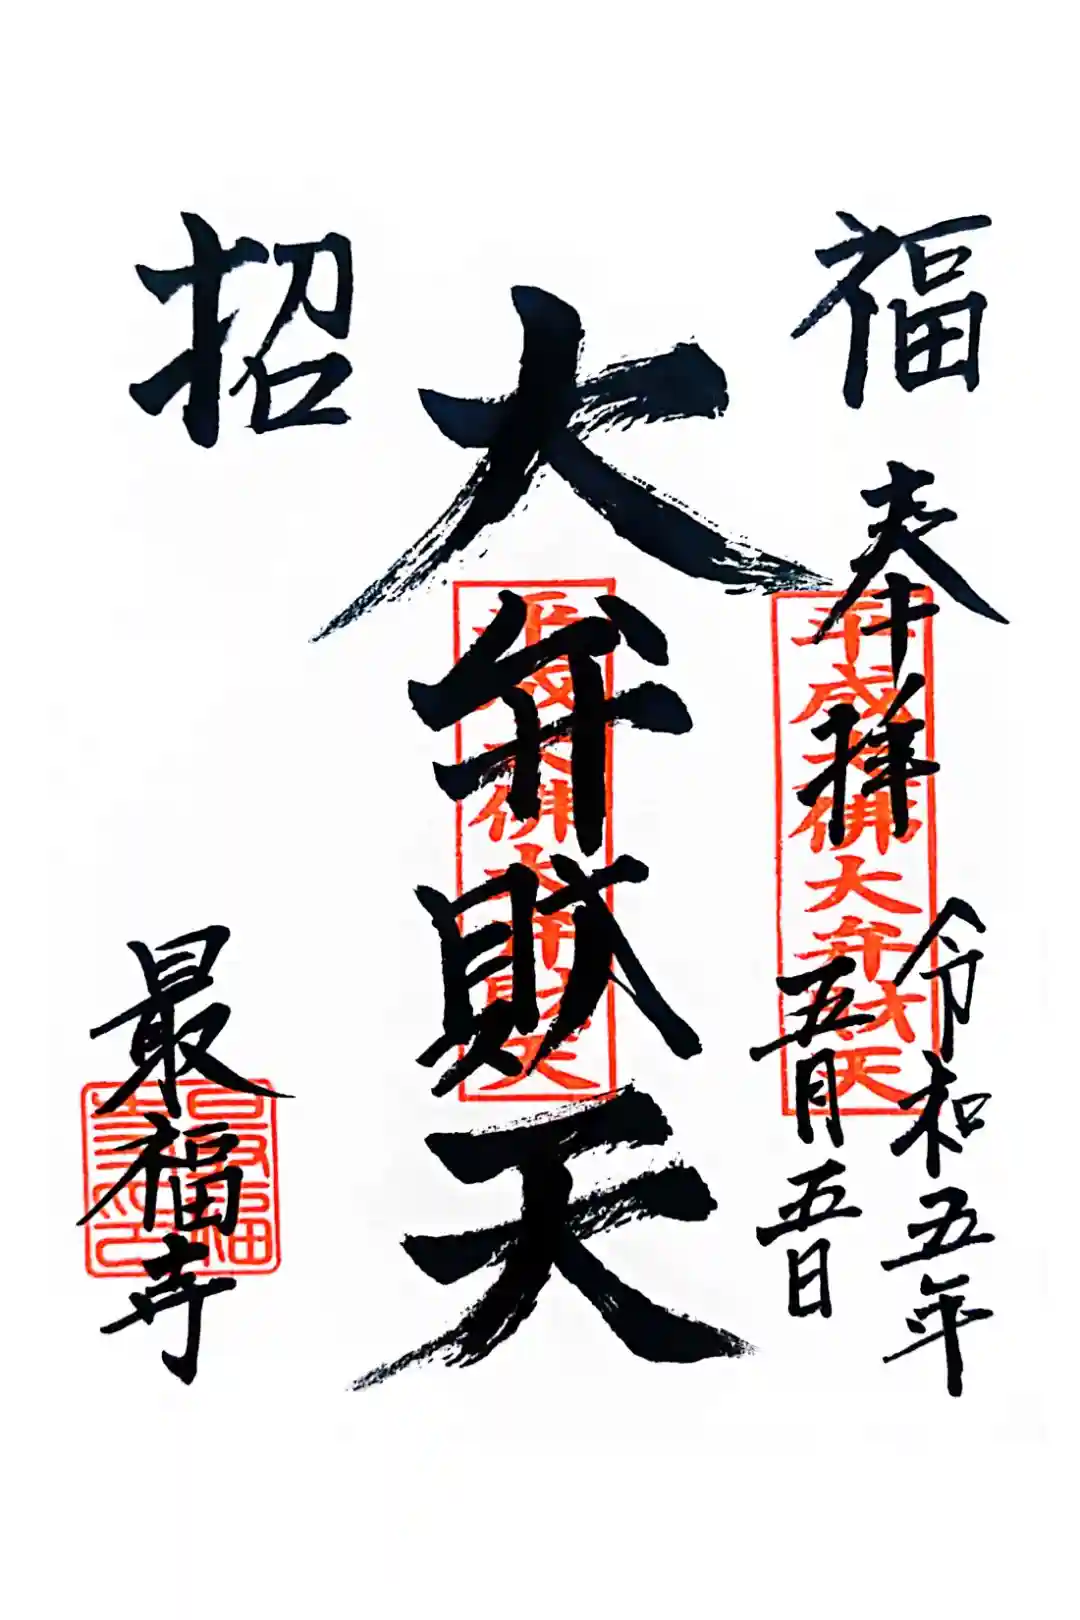 福
奉拝
令和五年
五月五日
平成大佛大弁財天
大弁財天
平成大佛大弁財天
招
最福寺